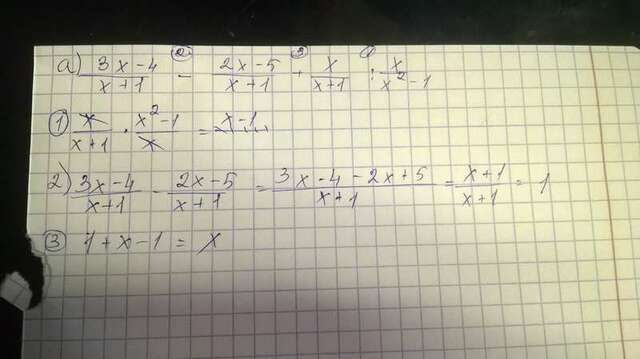 ② ③ ①
а) (3x-4)/(x+1) - (2x-5)/(x+1) + x/(x+1) : x/(x²-1)
① x/(x+1) · (x²-1)/x = x-1
2) (3x-4)/(x+1) - (2x-5)/(x+1) = (3x-4-2x+5)/(x+1) = (x+1)/(x+1) = 1
③ 1+x-1 = x